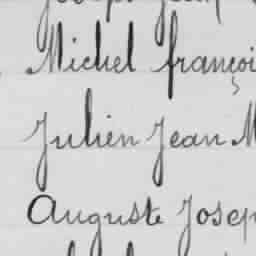 Michel françoi
Julien Jean M
Auguste Josep